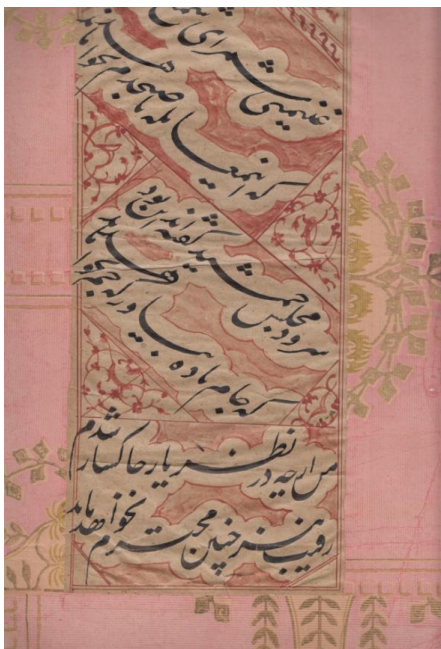 غنیمتی شمر ای
که این معامله تا صبحدم نخواهد ماند
سرود مجلس جمشید گفته‌اند این بود
که جام باده بیاور که جم نخواهد ماند
من ار چه در نظر یار خاکسار شدم
رقیب نیز چنین محترم نخواهد ماند